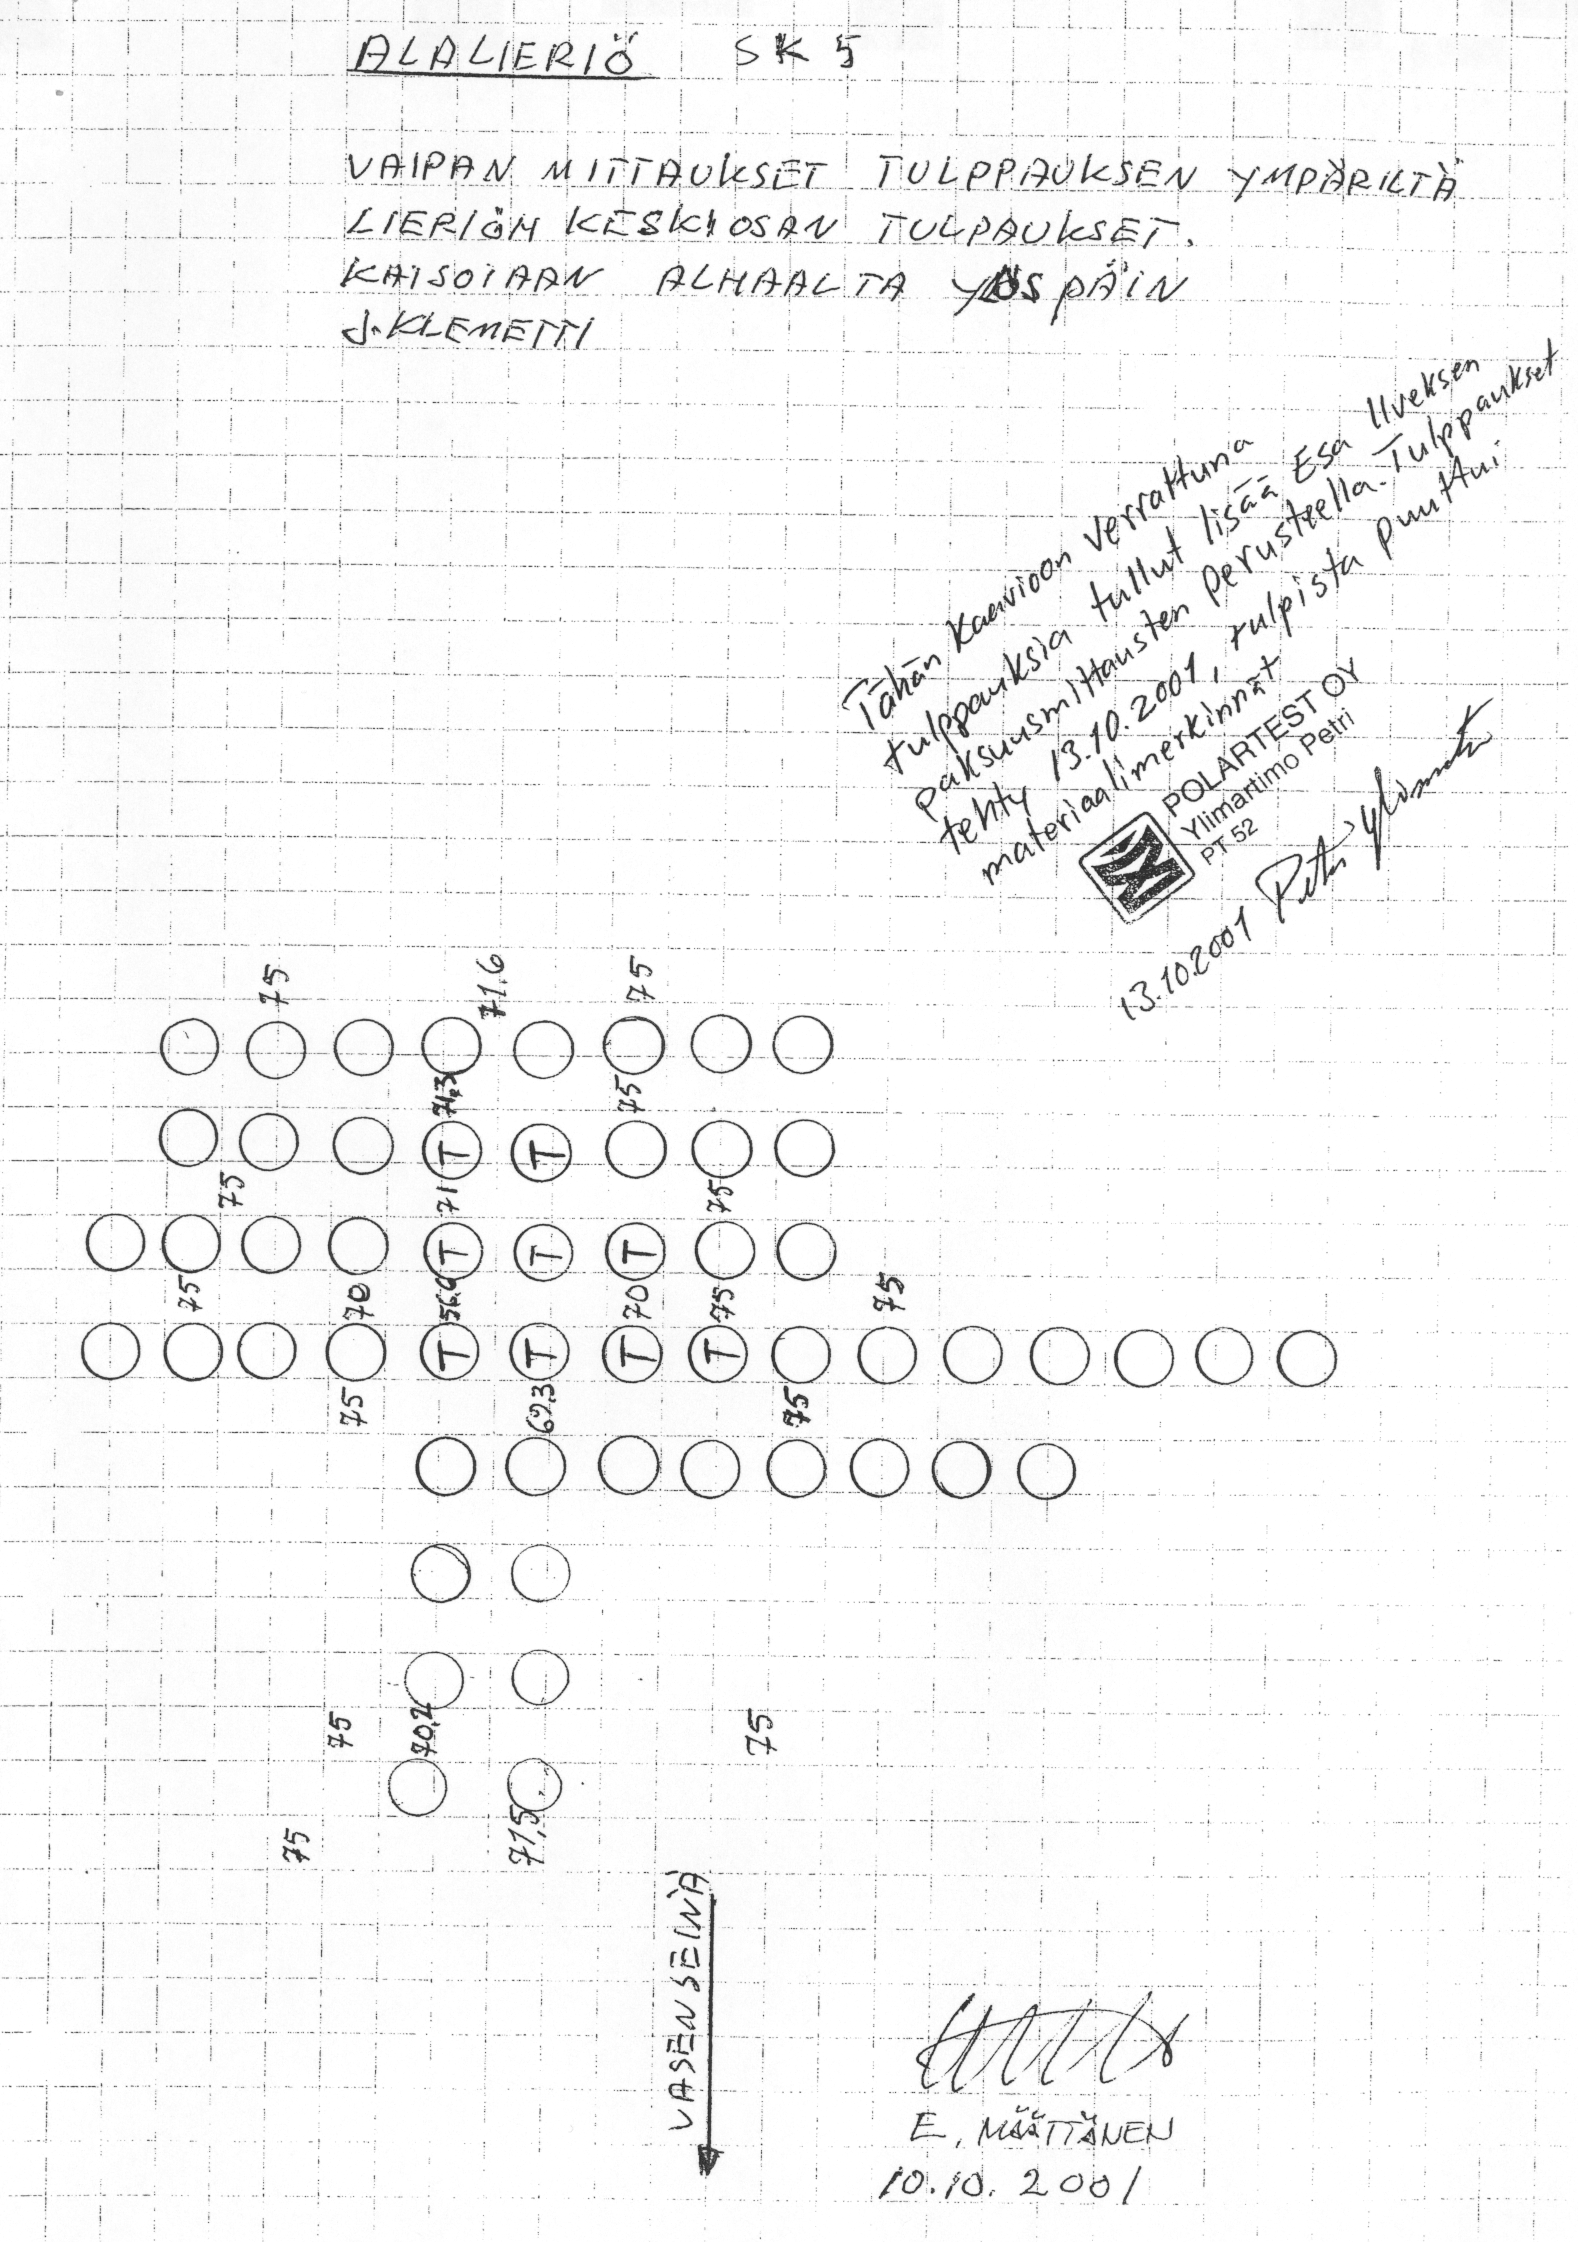 ALALIERIÖ SK 5
VAIPAN MITTAUKSET TULPPAUKSEN YMPÄRILTÄ
LIERIÖN KESKIOSAN TULPAUKSET.
KATSOTAAN ALHAALTA YLÖSPÄIN
J. KLEMETTI
Tähän kaavioon verrattuna
tulppauksia tullut lisää Esa Ilveksen
paksuusmittausten perusteella. Tulppaukset
tehty 13.10.2001, tulpista puuttui
materiaalimerkinnät
POLARTEST OY
Ylimartimo Petri
PT 52
13.10.2001 Petri Ylimartimo
75 71,6 75
71,3 75
T T
75 71 75
T T T
75 70 56.0 70 75 75
T T T T
75 69.3 75
75 70,2 75
75 71,5
VASEN SEINÄ
E. MÄÄTTÄNEN
10.10. 2001